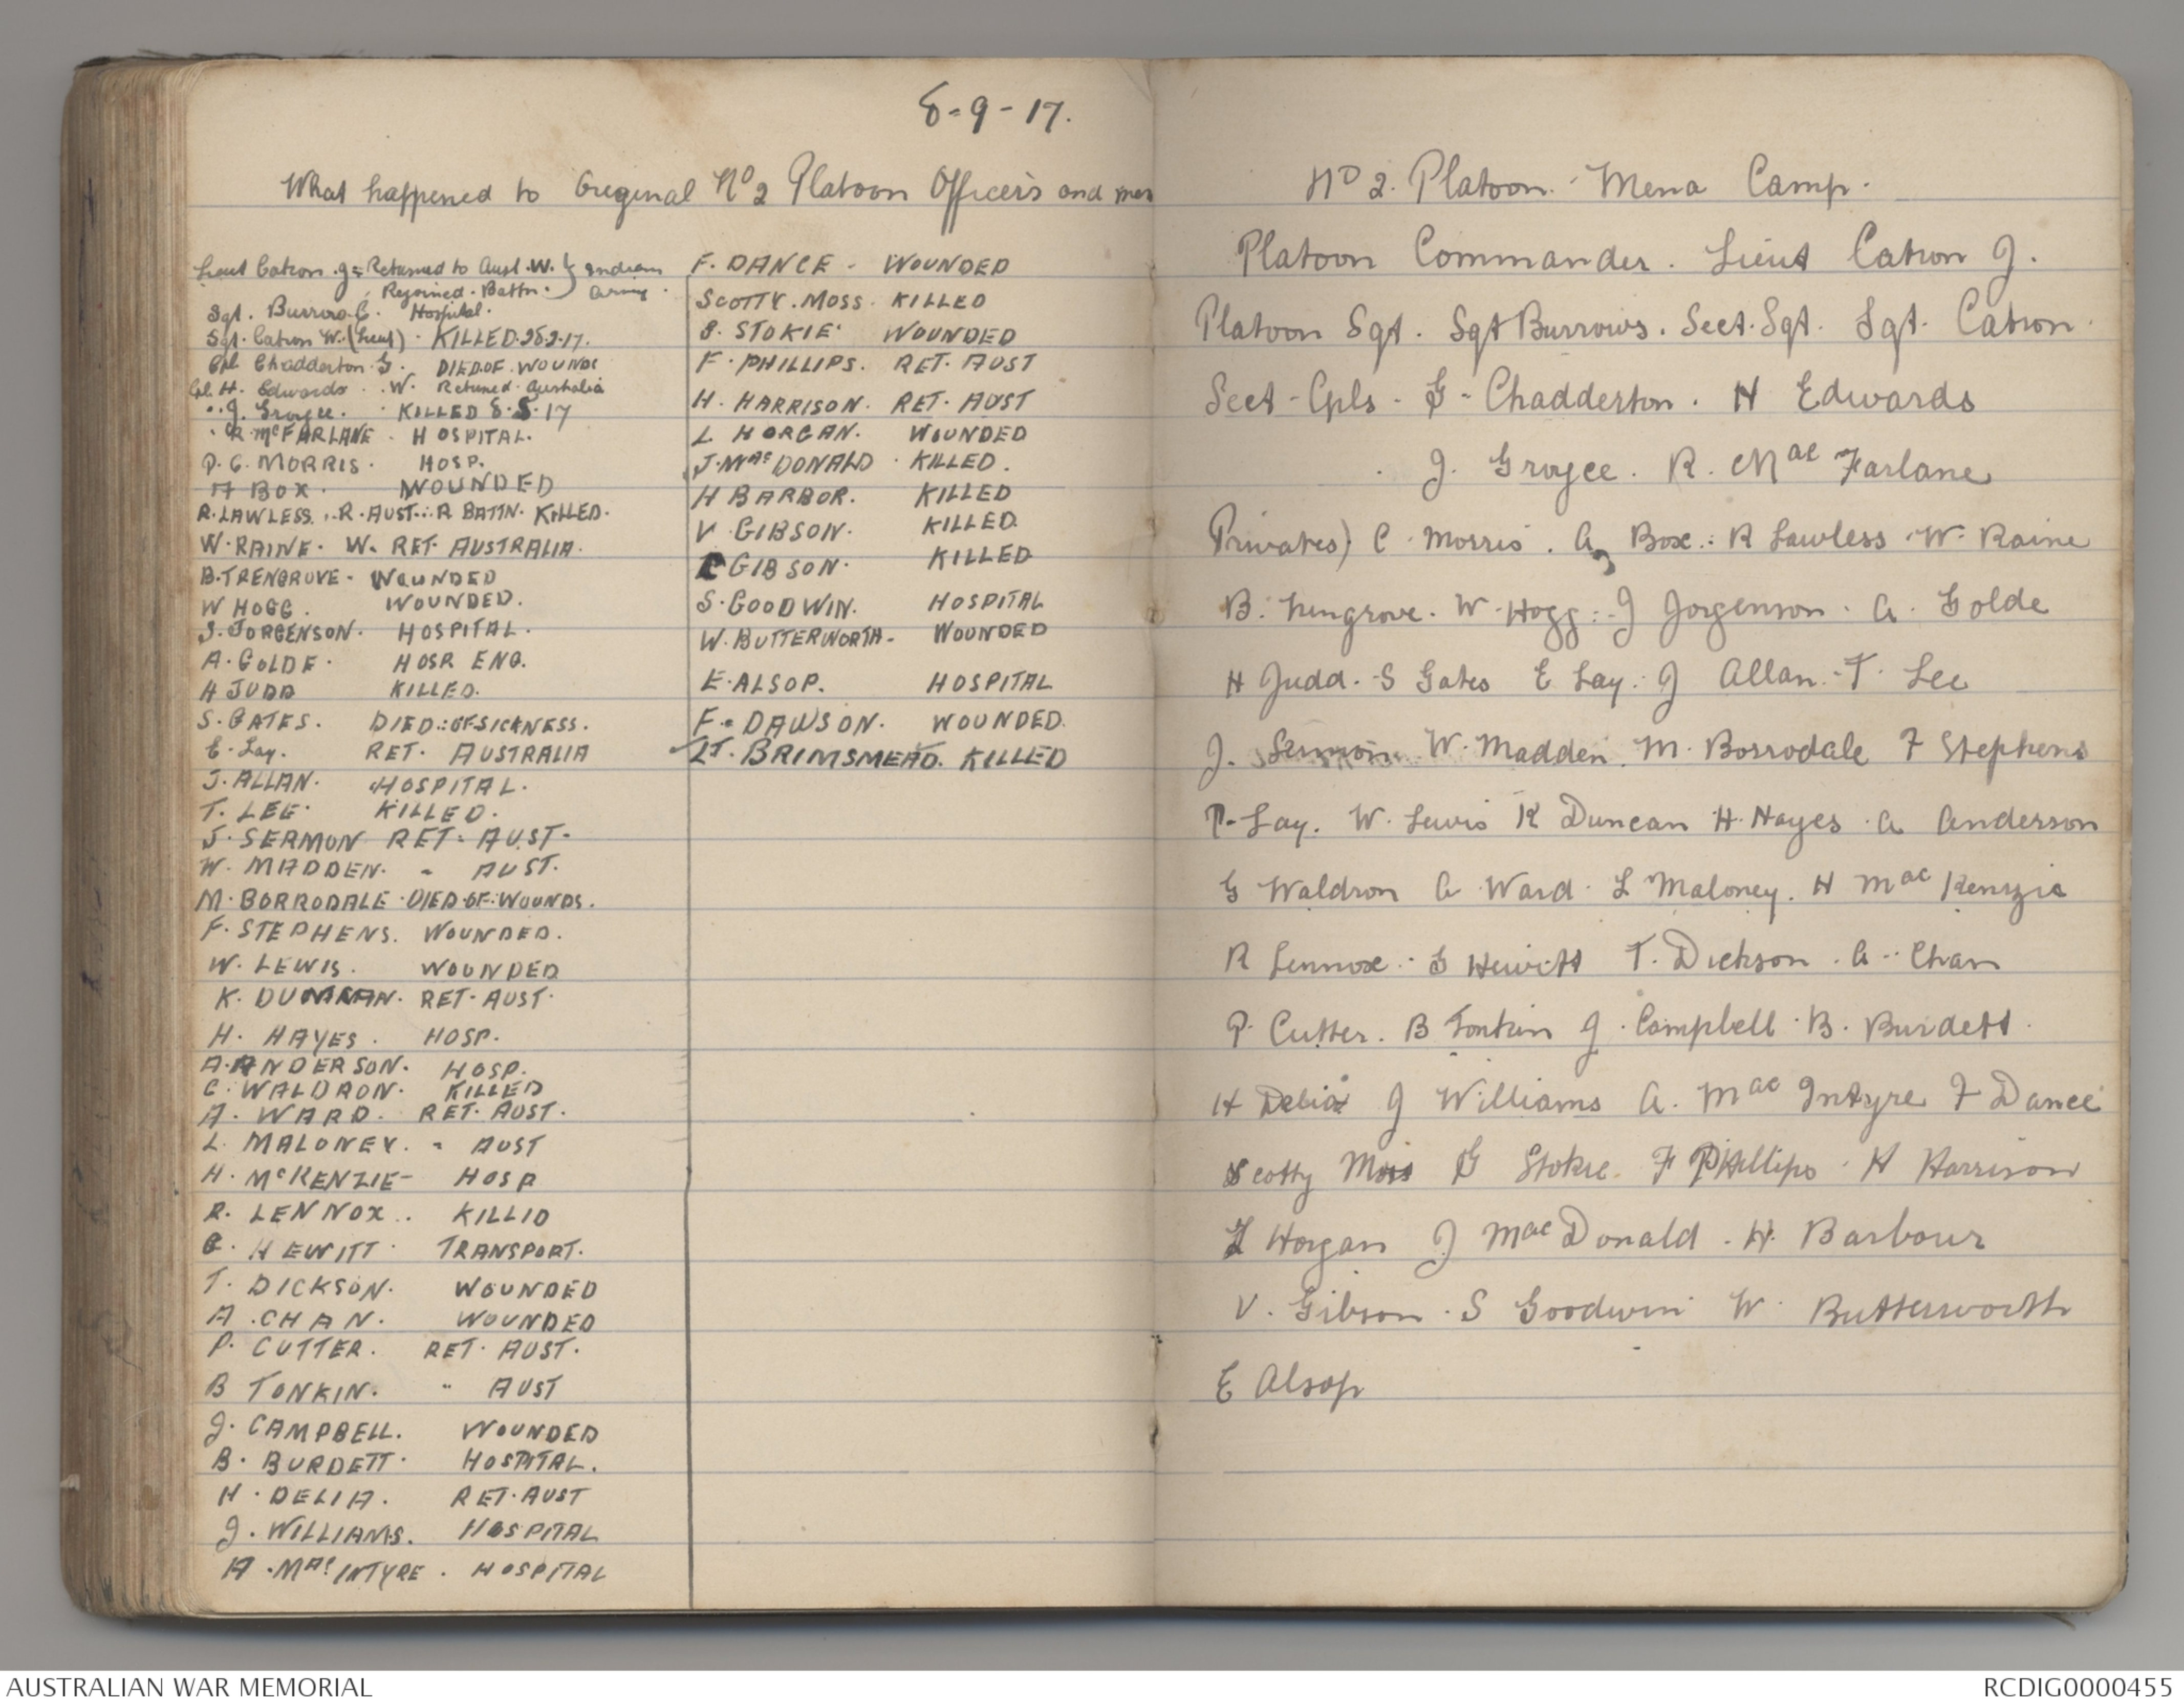 8-9-17.
What happened to Original No 2 Platoon Officers and men
Lieut Catron. J = Returned to Aust. W. } Indian
Rejoined. Battn. } Army.
Sgt. Burrows C. Hospital.
Sgt. Catron W. (Lieut) . KILLED. 25.2.17.
Cpl Chadderton G. DIED.OF.WOUNDS
Cpl. H. Edwards . W. Retuned Australia
" J. Groyce. . KILLED 8.8.17
" R. McFARLANE . HOSPITAL.
P. C. MORRIS. HOSP.
A BOX. WOUNDED
R. LAWLESS. . R. AUST. . R BATTN. KILLED.
W. RAINE. W. RET. AUSTRALIA.
B. TRENGRUVE. WOUNDED
W HOGG. WOUNDED.
J. JORGENSON. HOSPITAL.
A. GOLDE. HOSP. ENG.
H JUDD KILLED.
S. GATES. DIED.:OF.SICKNESS.
E. Lay. RET. AUSTRALIA
J. ALLAN. HOSPITAL.
T. LEE. KILLED.
J. SERMON RET. AUST.
W. MADDEN. " AUST.
M. BORRODALE . DIED.OF.WOUNDS.
F. STEPHENS. WOUNDED.
W. LEWIS. WOUNDED
K. DUNCAN. RET. AUST.
H. HAYES. HOSP.
A. ANDERSON. HOSP.
G. WALDRON. KILLED
A. WARD. RET. AUST.
L. MALONEY. " AUST
H. McKENZIE- HOSP
R. LENNOX. . KILLID
G. HEWITT. TRANSPORT.
T. DICKSON. WOUNDED
A . CHAN. WOUNDED
P. CUTTER. RET. AUST.
B TONKIN. " AUST
J. CAMPBELL. WOUNDED
B. BURDETT. HOSPITAL.
H. DELIA. RET. AUST
J. WILLIAMS. HOSPITAL
A . MacINTYRE . HOSPITAL
F. DANCE - WOUNDED
SCOTTY. MOSS. KILLED
G. STOKIE. WOUNDED
F. PHILLIPS. RET. AUST
H. HARRISON. RET. AUST
L. HORGAN. WOUNDED
J. MacDONALD . KILLED.
H BARBOR. KILLED
V. GIBSON. KILLED.
GIBSON. KILLED
S. GOODWIN. HOSPITAL
W. BUTTERWORTH- WOUNDED
E. ALSOP. HOSPITAL
F. DAWSON. WOUNDED.
LT. BRIMSMEAD. KILLED
No 2. Platoon. Mena Camp.
Platoon Commander. Lieut Catron J.
Platoon Sgt. Sgt Burrows. Sect. Sgt. Sgt. Catron.
Sect - Cpls - G - Chadderton. H Edwards
J. Groyce. R. Mac Farlane
Privates) C. Morris. A Box. R Lawless. W. Raine
B. Trengrove. W. Hogg. J Jorgenson. A. Golde
H Judd. S Gates E Lay. J Allan. T. Lee
J. Sermon W. Madden. M. Borrodale F Stephens
P. Lay. W. Lewis K Duncan H. Hayes. A Anderson
G Waldron A Ward. L Maloney. H Mac Kenzie
R Lennox. G Hewitt T. Dickson. A. Chan
P. Cutter. B Tonkin J. Campbell. B. Burdett.
H Delia J Williams A. Mac Intyre F Dance
Scotty Moss G Stokie F Phillips. H Harrison
L Horgan J Mac Donald. H. Barbour
V. Gibson. S Goodwin W. Butterworth
E Alsop
AUSTRALIAN WAR MEMORIAL
RCDIG0000455